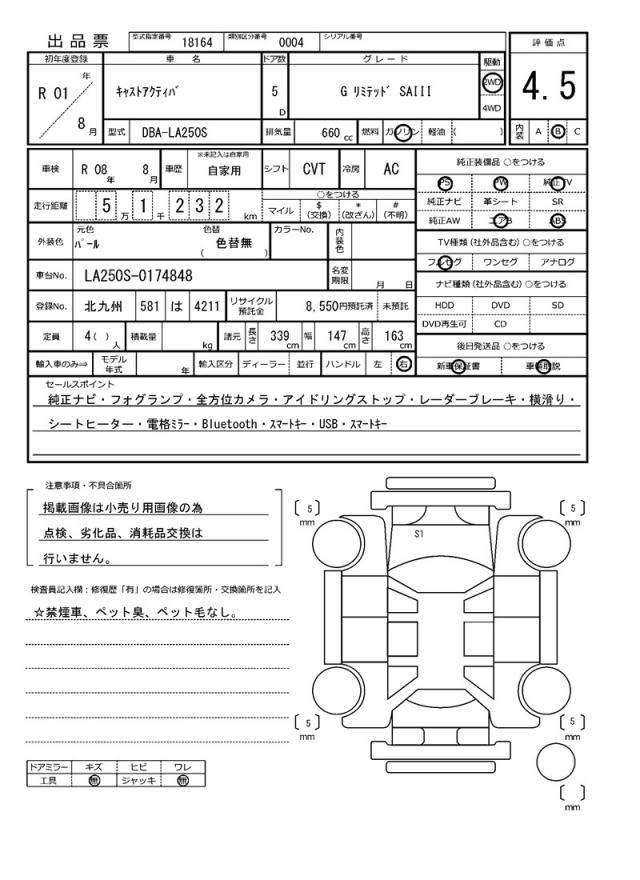 出品票 型式指定番号 18164 類別区分番号 0004 シリアル番号
評価点
4.5
内装 A B C
初年度登録 車名 ドア数 グレード 駆動
R 01 年 8 月
ｷｬｽﾄｱｸﾃｨﾊﾞ 5 D G ﾘﾐﾃｯﾄﾞ SAIII 2WD
4WD
型式 DBA-LA250S 排気量 660 cc 燃料 ガソリン 軽油 ( )
車検 R 08 年 8 月 車歴 ※未記入は自家用 自家用 シフト CVT 冷房 AC
走行距離 5 万 1 千 2 3 2 km
○をつける
マイル $ (交換) * (改ざん) # (不明)
外装色 元色 ﾊﾟｰﾙ 色替 ( 色替無 ) カラーNo. 内装色
車台No. LA250S-0174848 名変期限 月 日
登録No. 北九州 581 は 4211 リサイクル預託金 8,550円預託済 未預託
定員 4( ) 人 積載量 kg 諸元 長さ 339 cm 幅 147 cm 高さ 163 cm
輸入車のみ⇒ モデル年式 年 輸入区分 ディーラー 並行 ハンドル 左 右
純正装備品 ○をつける
PS PW 純正TV
純正ナビ 革シート SR
純正AW エアB ABS
TV種類(社外品含む)○をつける
フルセグ ワンセグ アナログ
ナビ種類(社外品含む)○をつける
HDD DVD SD
DVD再生可 CD
後日発送品 ○をつける
新車保証書 車輌取説
セールスポイント
純正ナビ・フォグランプ・全方位カメラ・アイドリングストップ・レーダーブレーキ・横滑り・
シートヒーター・電格ﾐﾗｰ・Bluetooth・ｽﾏｰﾄｷｰ・USB・ｽﾏｰﾄｷｰ
注意事項・不具合箇所
掲載画像は小売り用画像の為
点検、劣化品、消耗品交換は
行いません。
検査員記入欄：修復歴「有」の場合は修復箇所・交換箇所を記入
☆禁煙車、ペット臭、ペット毛なし。
ドアミラー キズ ヒビ ワレ
工具 無 ジャッキ 無
〔 5 〕 mm
〔 5 〕 mm
S1
〔 5 〕 mm
〔 5 〕 mm
〔 〕 mm